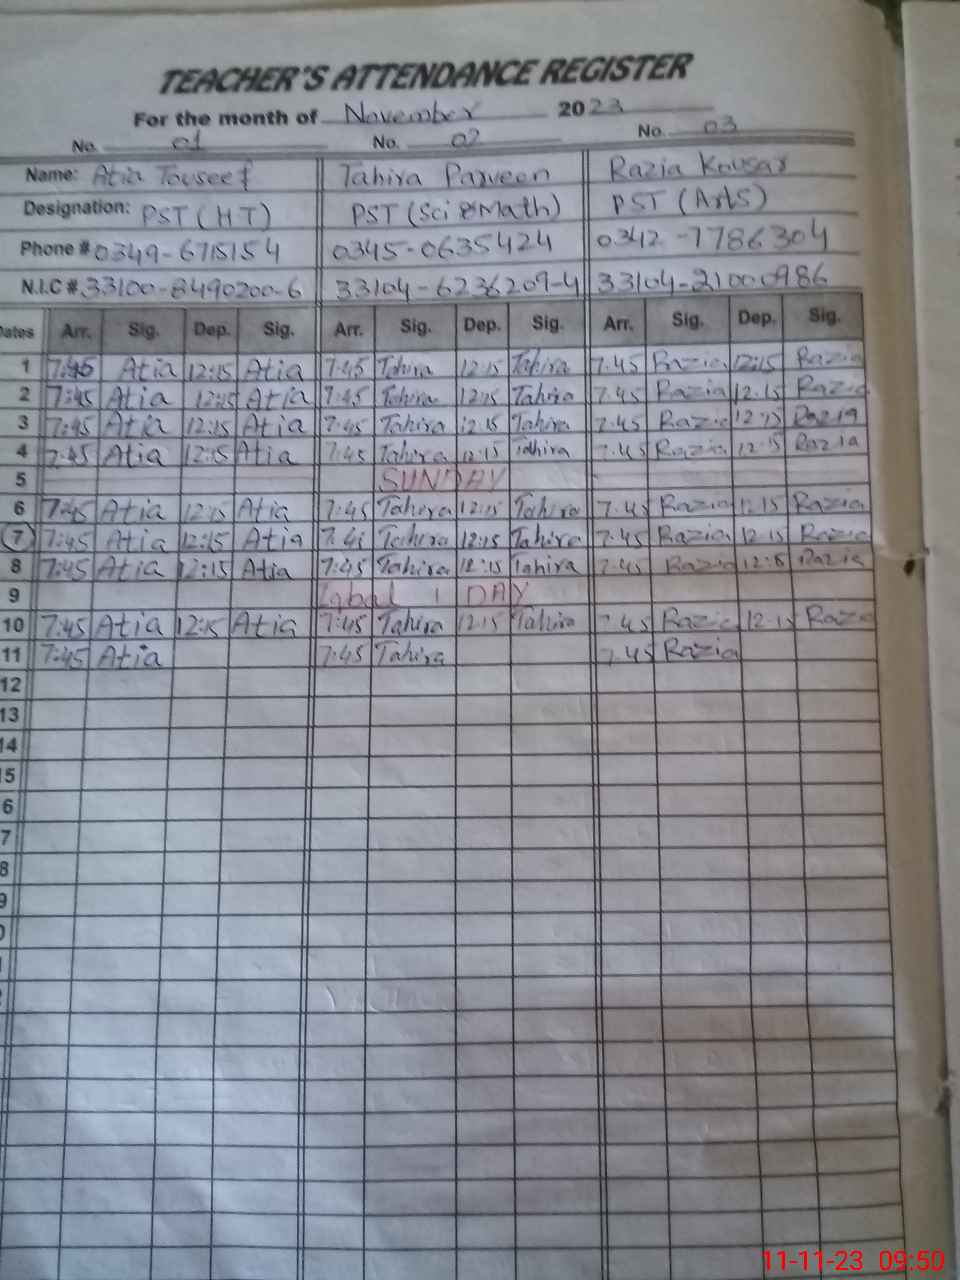 TEACHER'S ATTENDANCE REGISTER
For the month of November 2023
No. 01 No. 02 No. 03
Name: Atia Touseef Tahira Parveen Razia Kousar
Designation: PST (HT) PST (Sci & Math) PST (Arts)
Phone # 0349-6715154 0345-0635424 0342-7786304
N.I.C # 33100-8490200-6 33104-6236209-4 33104-21000986
Dates Arr. Sig. Dep. Sig. Arr. Sig. Dep. Sig. Arr. Sig. Dep. Sig.
1 7:45 Atia 12:15 Atia 7:45 Tahira 12:15 Tahira 7.45 Razia 12:15 Razia
2 7:45 Atia 12:15 Atia 7:45 Tahira 12:15 Tahira 7.45 Razia 12.15 Razia
3 7:45 Atia 12:15 Atia 7:45 Tahira 12:15 Tahira 7.45 Razia 12:15 Razia
4 7:45 Atia 12:15 Atia 7:45 Tahira 12:15 Tahira 7.45 Razia 12:15 Razia
5 SUNDAY
6 7:45 Atia 12:15 Atia 7:45 Tahira 12:15 Tahira 7.45 Razia 12.15 Razia
7 7:45 Atia 12:15 Atia 7.45 Tahira 12:15 Tahira 7.45 Razia 12.15 Razia
8 7:45 Atia 12:15 Atia 7:45 Tahira 12:15 Tahira 7.45 Razia 12:15 Razia
9 Iqbal DAY
10 7:45 Atia 12:15 Atia 7:45 Tahira 12:15 Tahira 7.45 Razia 12.15 Razia
11 7:45 Atia 7:45 Tahira 7.45 Razia
12
13
14
5
6
7
8
9
11-11-23 09:50